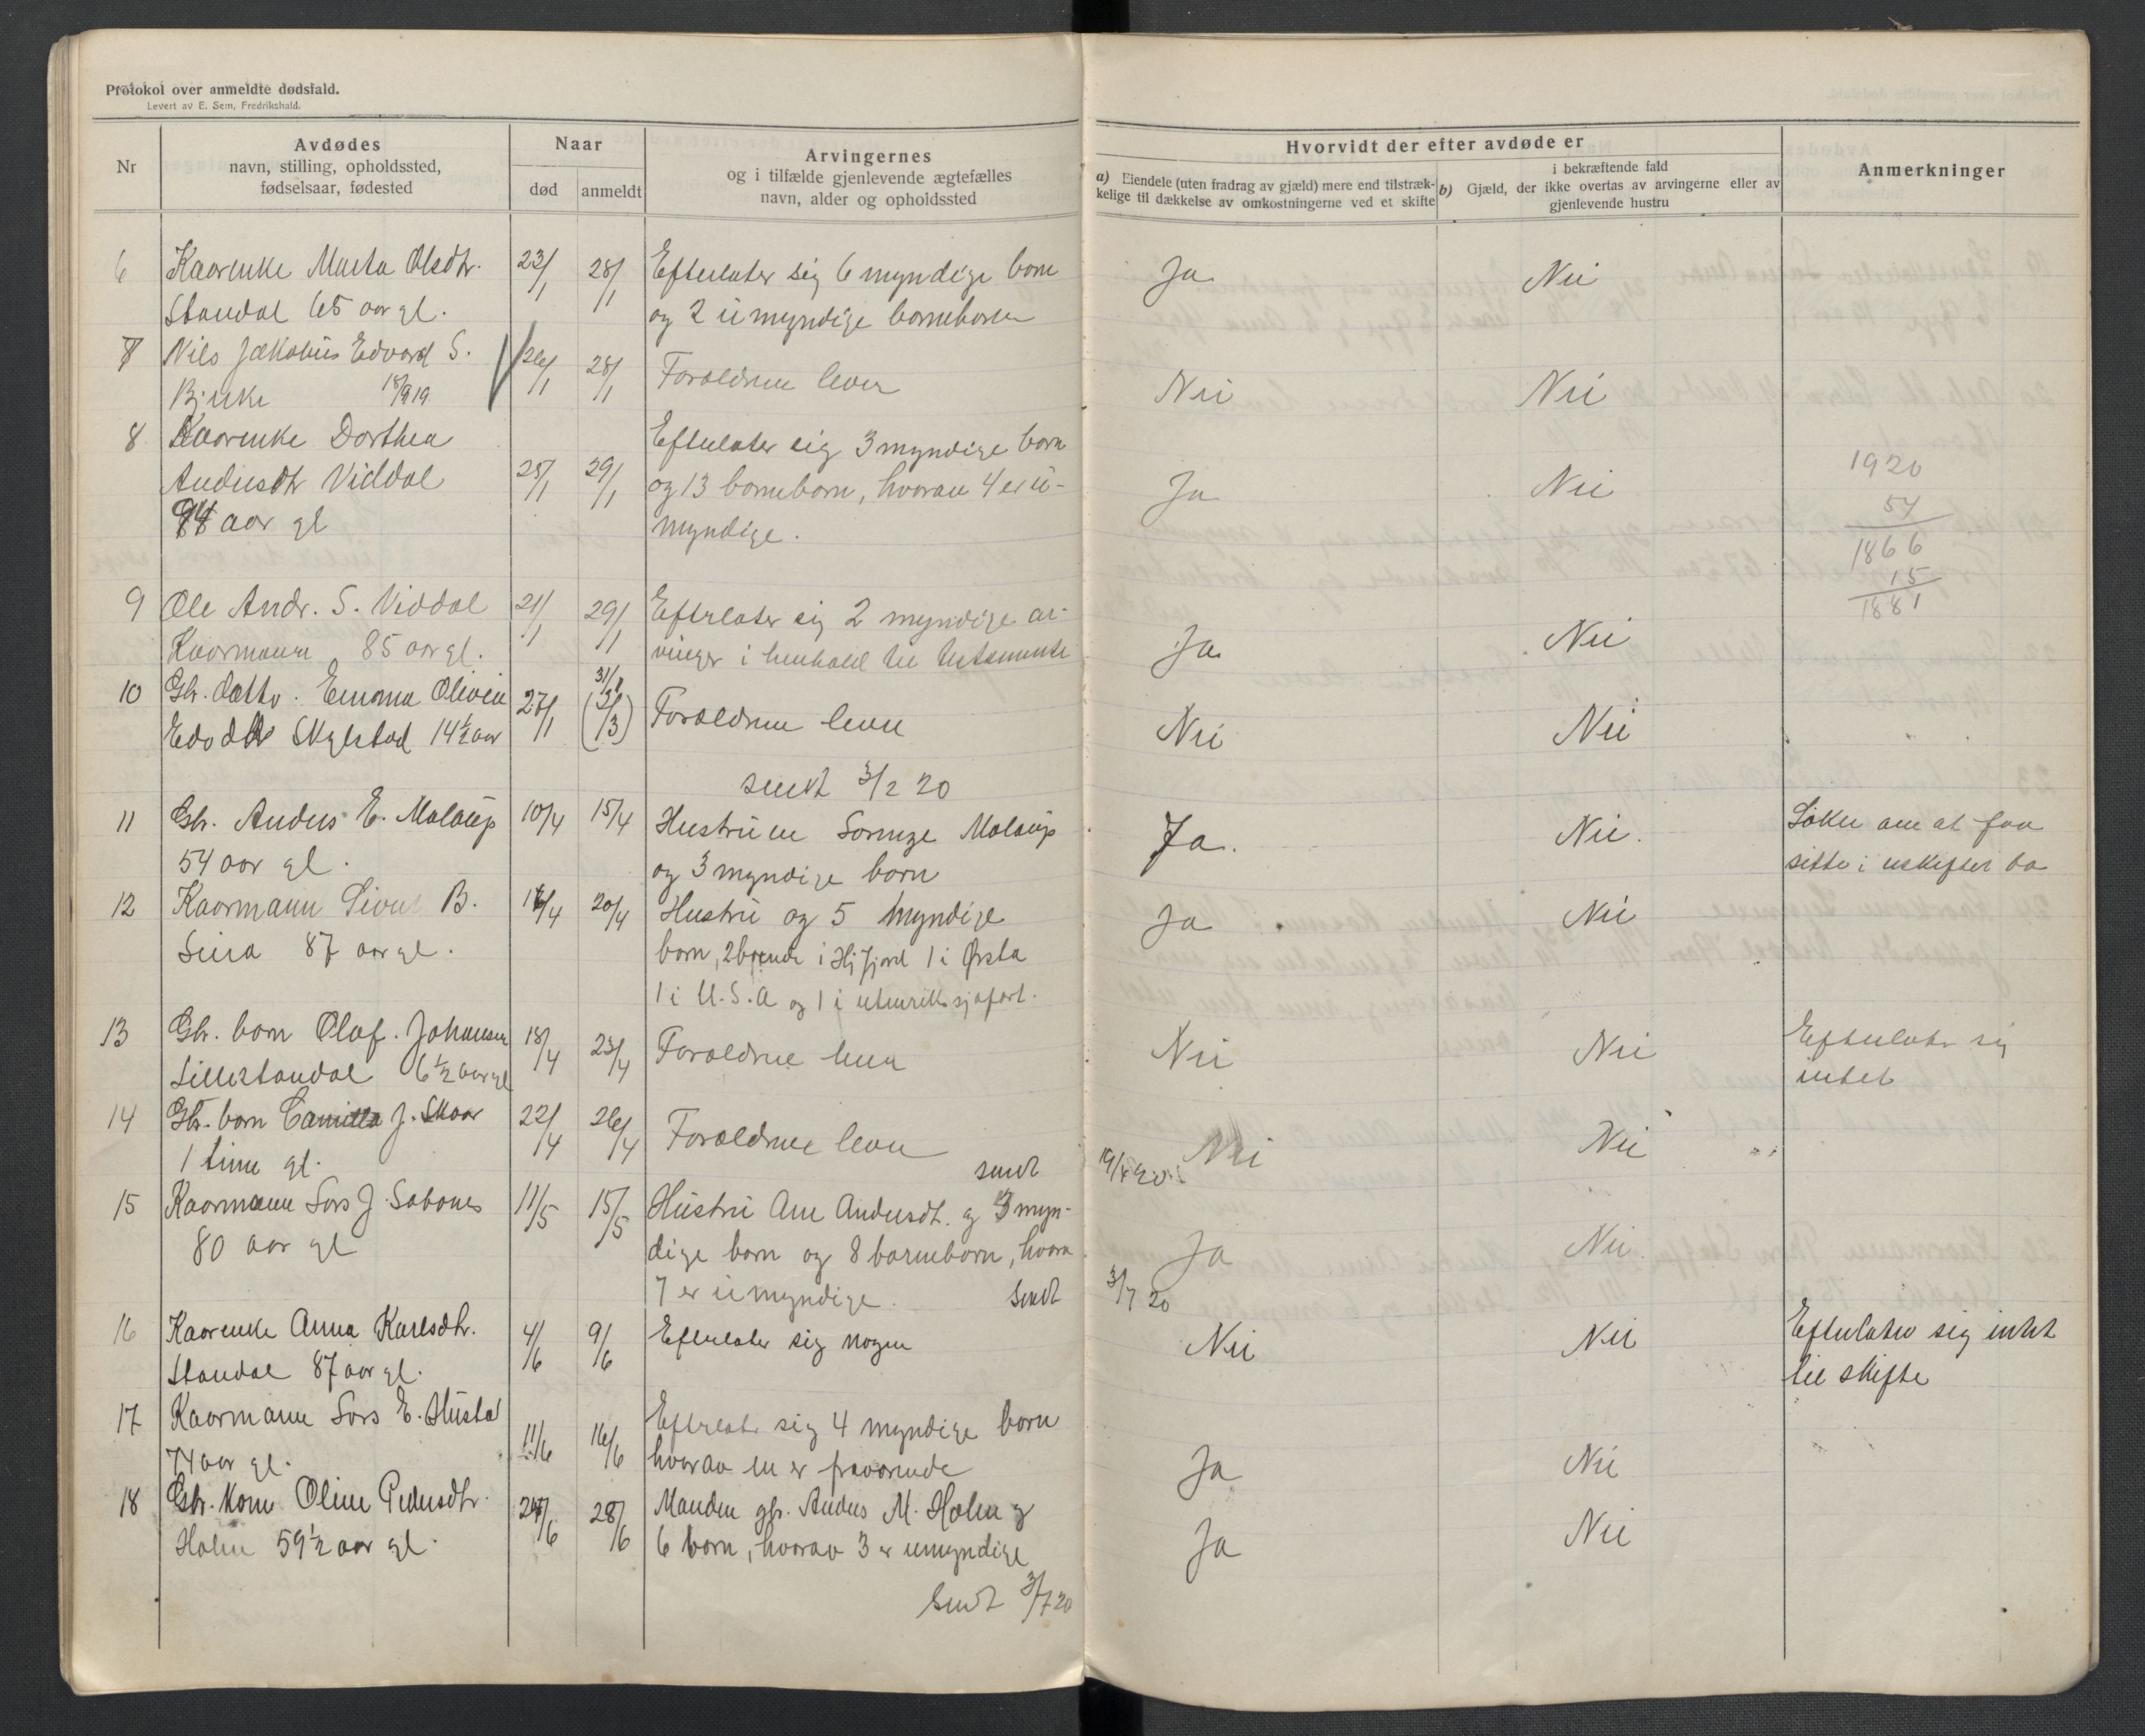 Protokol over anmeldte dødsfald.
Levert av E. Sem, Fredrikshald.
Nr
Avdødes
navn, stilling, opholdssted,
fødselsaar, fødested
Naar
død
anmeldt
Arvingernes
og i tilfælde gjenlevende ægtefælles
navn, alder og opholdssted
Hvorvidt der efter avdøde er
a) Eiendele (uten fradrag av gjæld) mere end tilstræk-
kelige til dækkelse av omkostningerne ved et skifte
i bekræftende fald
b) Gjæld, der ikke overtas av arvingerne eller av
gjenlevende hustru
Anmerkninger
6 Kaarenke Marta Olsdtr. 23/1 28/1 Efterlater sig 6 myndige born Ja Nei
Standal 65 aar gl. og 2 umyndige borneborn
7 Nils Jakobus Edvard S. 26/1 28/1 Foroldrene lever Nei Nei
Bjerke 18/9 19
8 Kaarenke Dorthea Efterlater sig 3 myndige born
Andersdtr Viddal 25/1 29/1 og 13 borneborn, hvorav 4 er u- Ja Nei
94 aar gl myndige.
1920
54
1866
15
1881
9 Ole Andr. S. Viddal 21/1 29/1 Efterlater sig 2 myndige ar- Ja Nei
Kaarmann 85 aar gl. vinger i henhold til testamente
10 Gbr. datter Emma Olivia 27/1 31/1 (3/3) Foroldrene lever Nei Nei
Edvdtr Skylstad 14 1/2 aar
sendt 3/2 20
11 Gbr. Anders E. Molaup 10/4 15/4 Hustruen Sorenze Molaup Ja. Nei. Søker om at faa
54 aar gl. og 3 myndige born sitte i uskiftet bo
12 Kaarmann Sivert B. 16/4 20/4 Hustru og 5 myndige Ja Nei
87 aar gl. born, 2 boende i Hj.fjord 1 i Ørsta
1 i U.S.A og 1 i utenriks sjøfart.
13 Gbr. born Olaf Johansen 18/4 23/4 Foroldrene lever Nei Nei Efterlater sig
Lillestandal 6 1/2 aar gl intet
14 Gbr. born Camilla J. Skaar 22/4 26/4 Foroldrene lever Nei Nei
1 time gl. sendt
15 Kaarmann Lars J. Sabones 11/5 15/5 Hustru Ane Andersdt. og 3 myn- Ja Nei.
80 aar gl dige born og 8 borneborn, hvorav
7 er umyndige. Sendt 3/7 20
16 Kaarenke Anna Karlsdtr. 4/6 9/6 Efterlater sig nogen Nei Nei Efterlater sig intet
Standal 87 aar gl. til skifte
17 Kaarmann Lars E. Hustad 11/6 16/6 Efterlater sig 4 myndige born Ja Nei
74 aar gl. hvorav en er fraværende
18 Gbr. kone Oline Pedersdtr. 24/6 28/6 Manden gbr. Anders M. Holen og Ja Nei
Holen 59 1/2 aar gl. 6 born, hvorav 3 er umyndige
Sendt 3/7 20